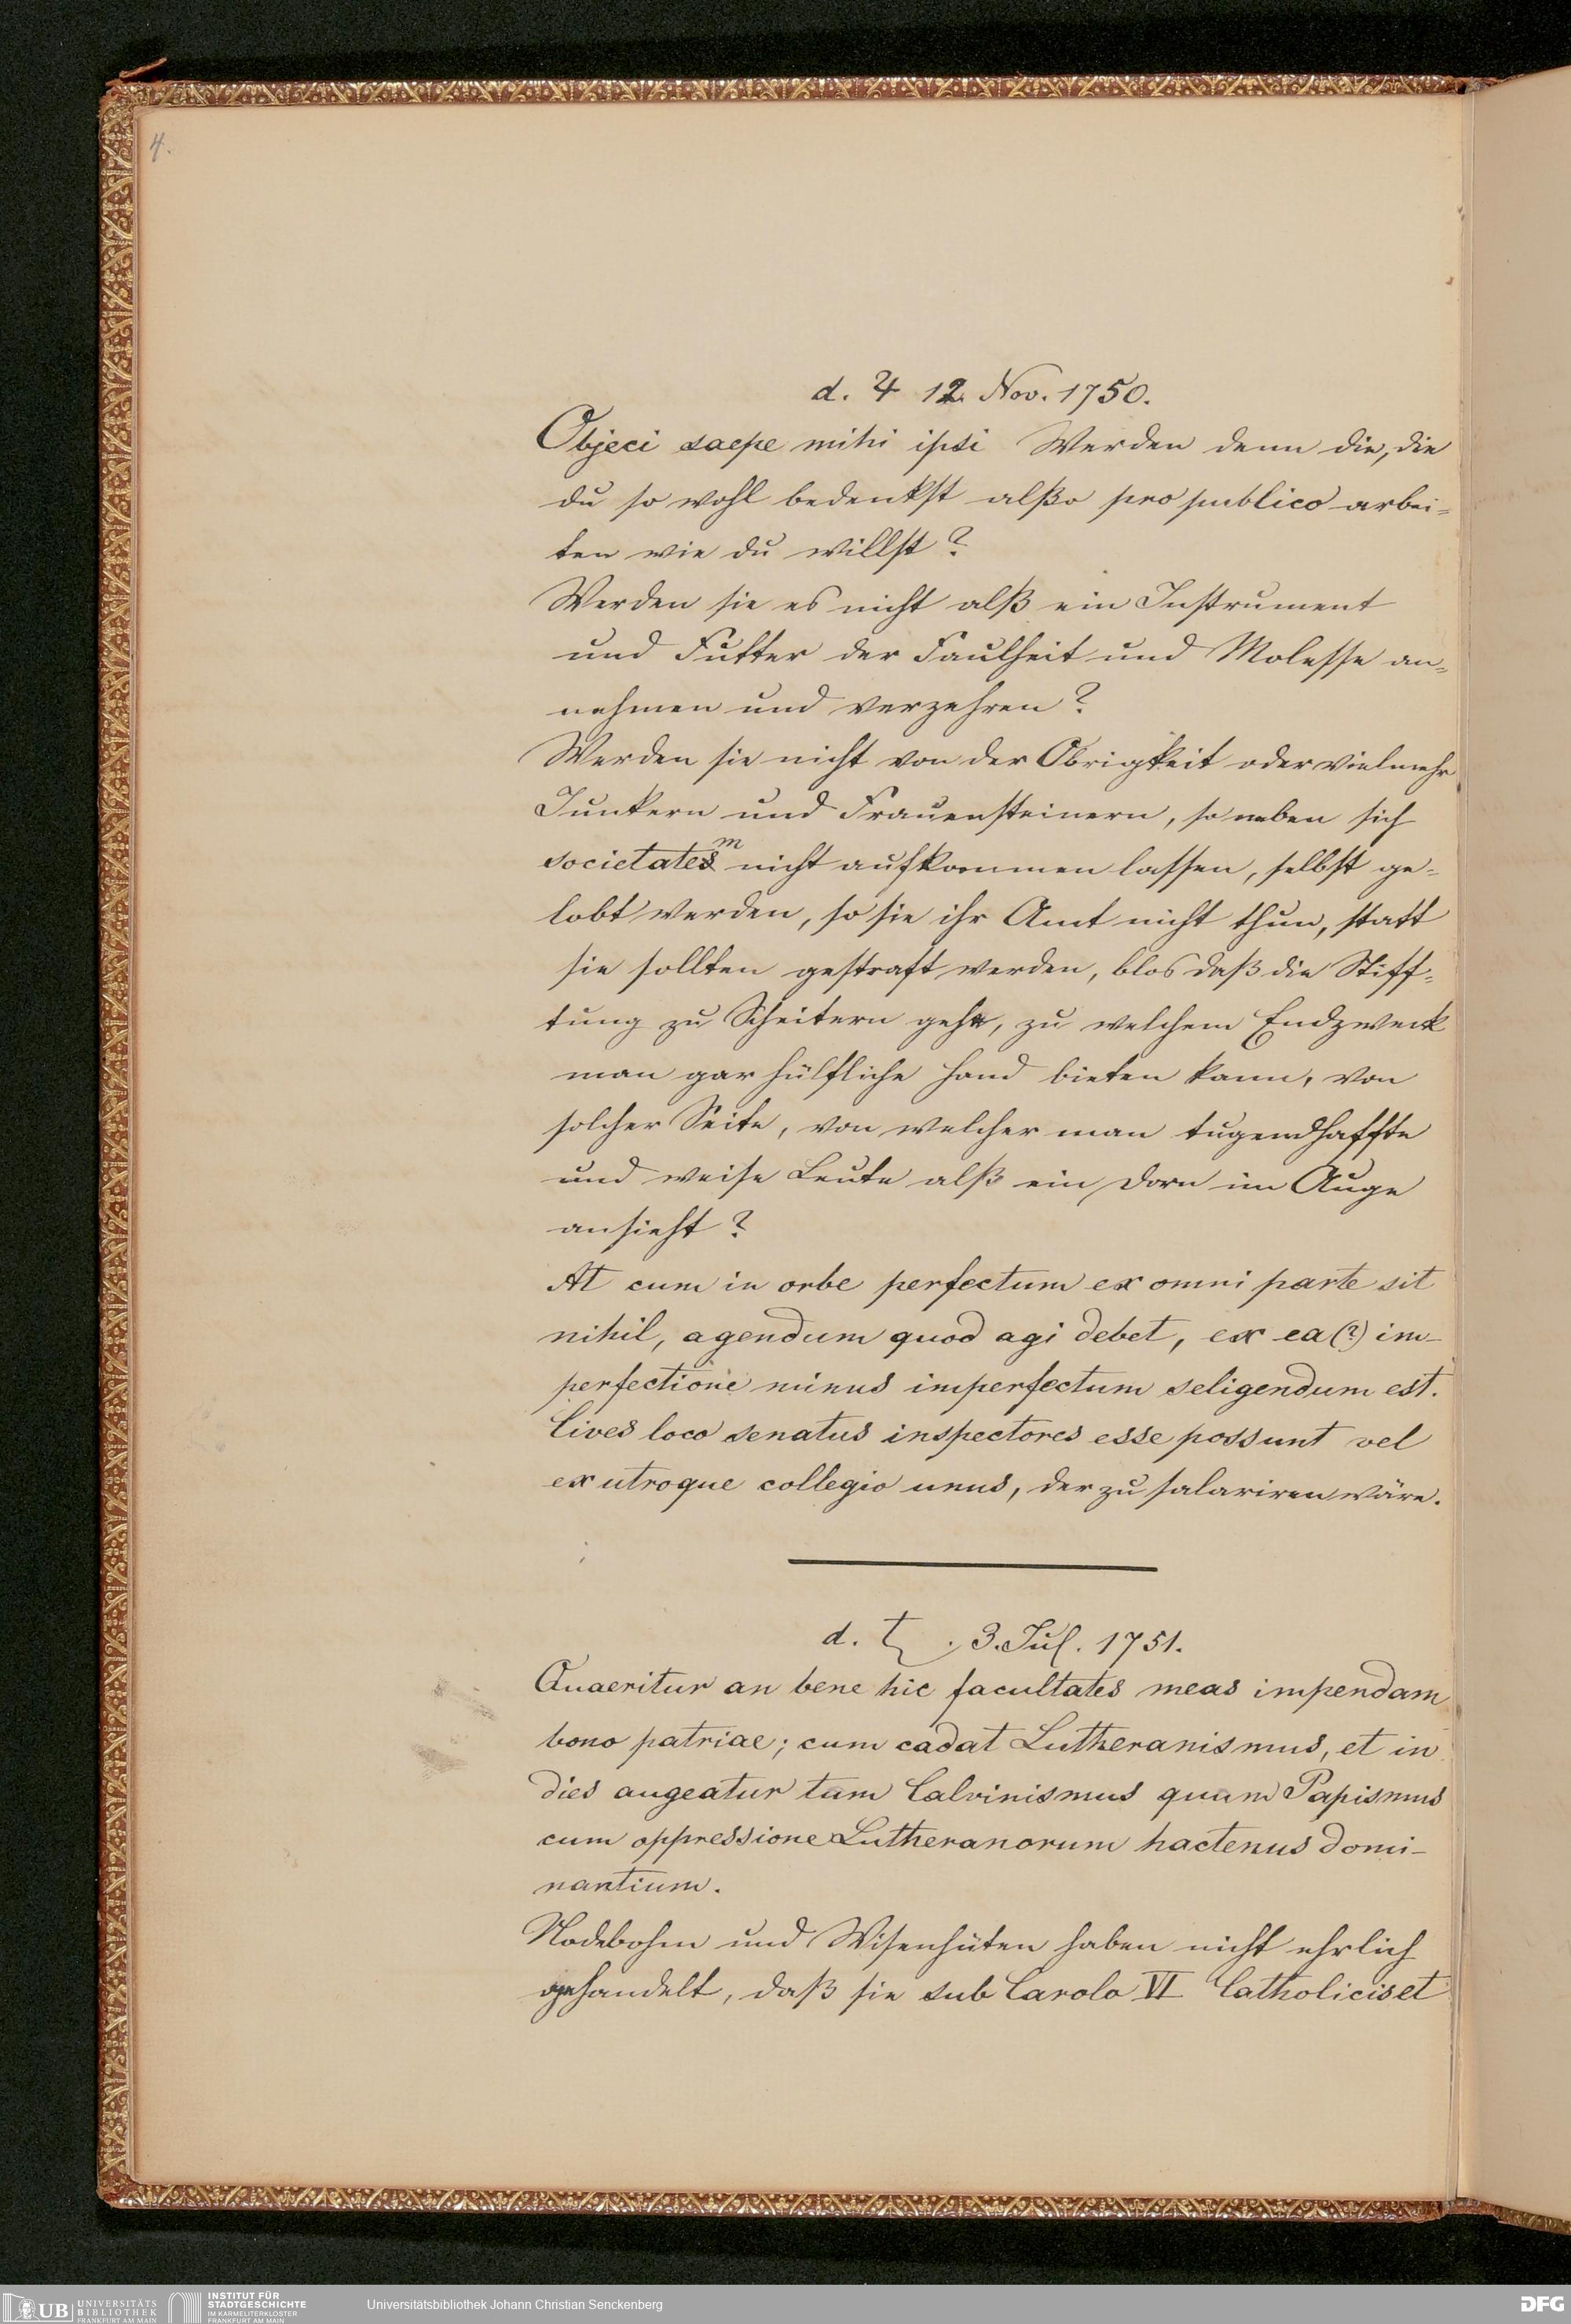 4.
d. ♃ 12. Nov. 1750.
Objeci saepe mihi ipsi Werden denn die, die
du so wohl bedenkst alßo pro publico arbei=
ten wie du willst?
Werden sie es nicht alß ein Instrument
und Futter der Faulheit und Molesse an=
nehmen und verzehren?
Werden sie nicht von der Obrigkeit oder vielmehr
Junkern und Frauensteinern, so neben sich
societatem nicht aufkommen lassen, selbst ge=
lobt werden, so sie ihr Amt nicht thun, statt
sie sollten gestraft werden, blos daß die Stiff=
tung zu Scheitern gehe, zu welchem Endzweck
man gar hülfliche Hand bieten kann, von
solcher Seite, von welcher man tugendhaffte
und weise Leute alß ein Dorn im Auge
ansieht?
At cum in orbe perfectum ex omni parte sit
nihil, agendum quod agi debet, ex ea (?) im-
perfectione minus imperfectum seligendum est.
Cives loco senatus inspectores esse possunt vel
ex utroque collegio unus, der zu salariren wäre.
d. ♄. 3. Jul. 1751.
Quaeritur an bene hic facultates meas impendam
bono patriae; cum cadat Lutheranismus, et in
dies augeatur tam Calvinismus quam Papismus
cum oppressione Lutheranorum hactenus domi-
nantium.
und haben nicht ehrlich
gehandelt, daß sie sub Carolo VI Catholicis et
UB UNIVERSITÄTS
BIBLIOTHEK
FRANKFURT AM MAIN
INSTITUT FÜR
STADTGESCHICHTE
IM KARMELITERKLOSTER
FRANKFURT AM MAIN
Universitätsbibliothek Johann Christian Senckenberg
DFG